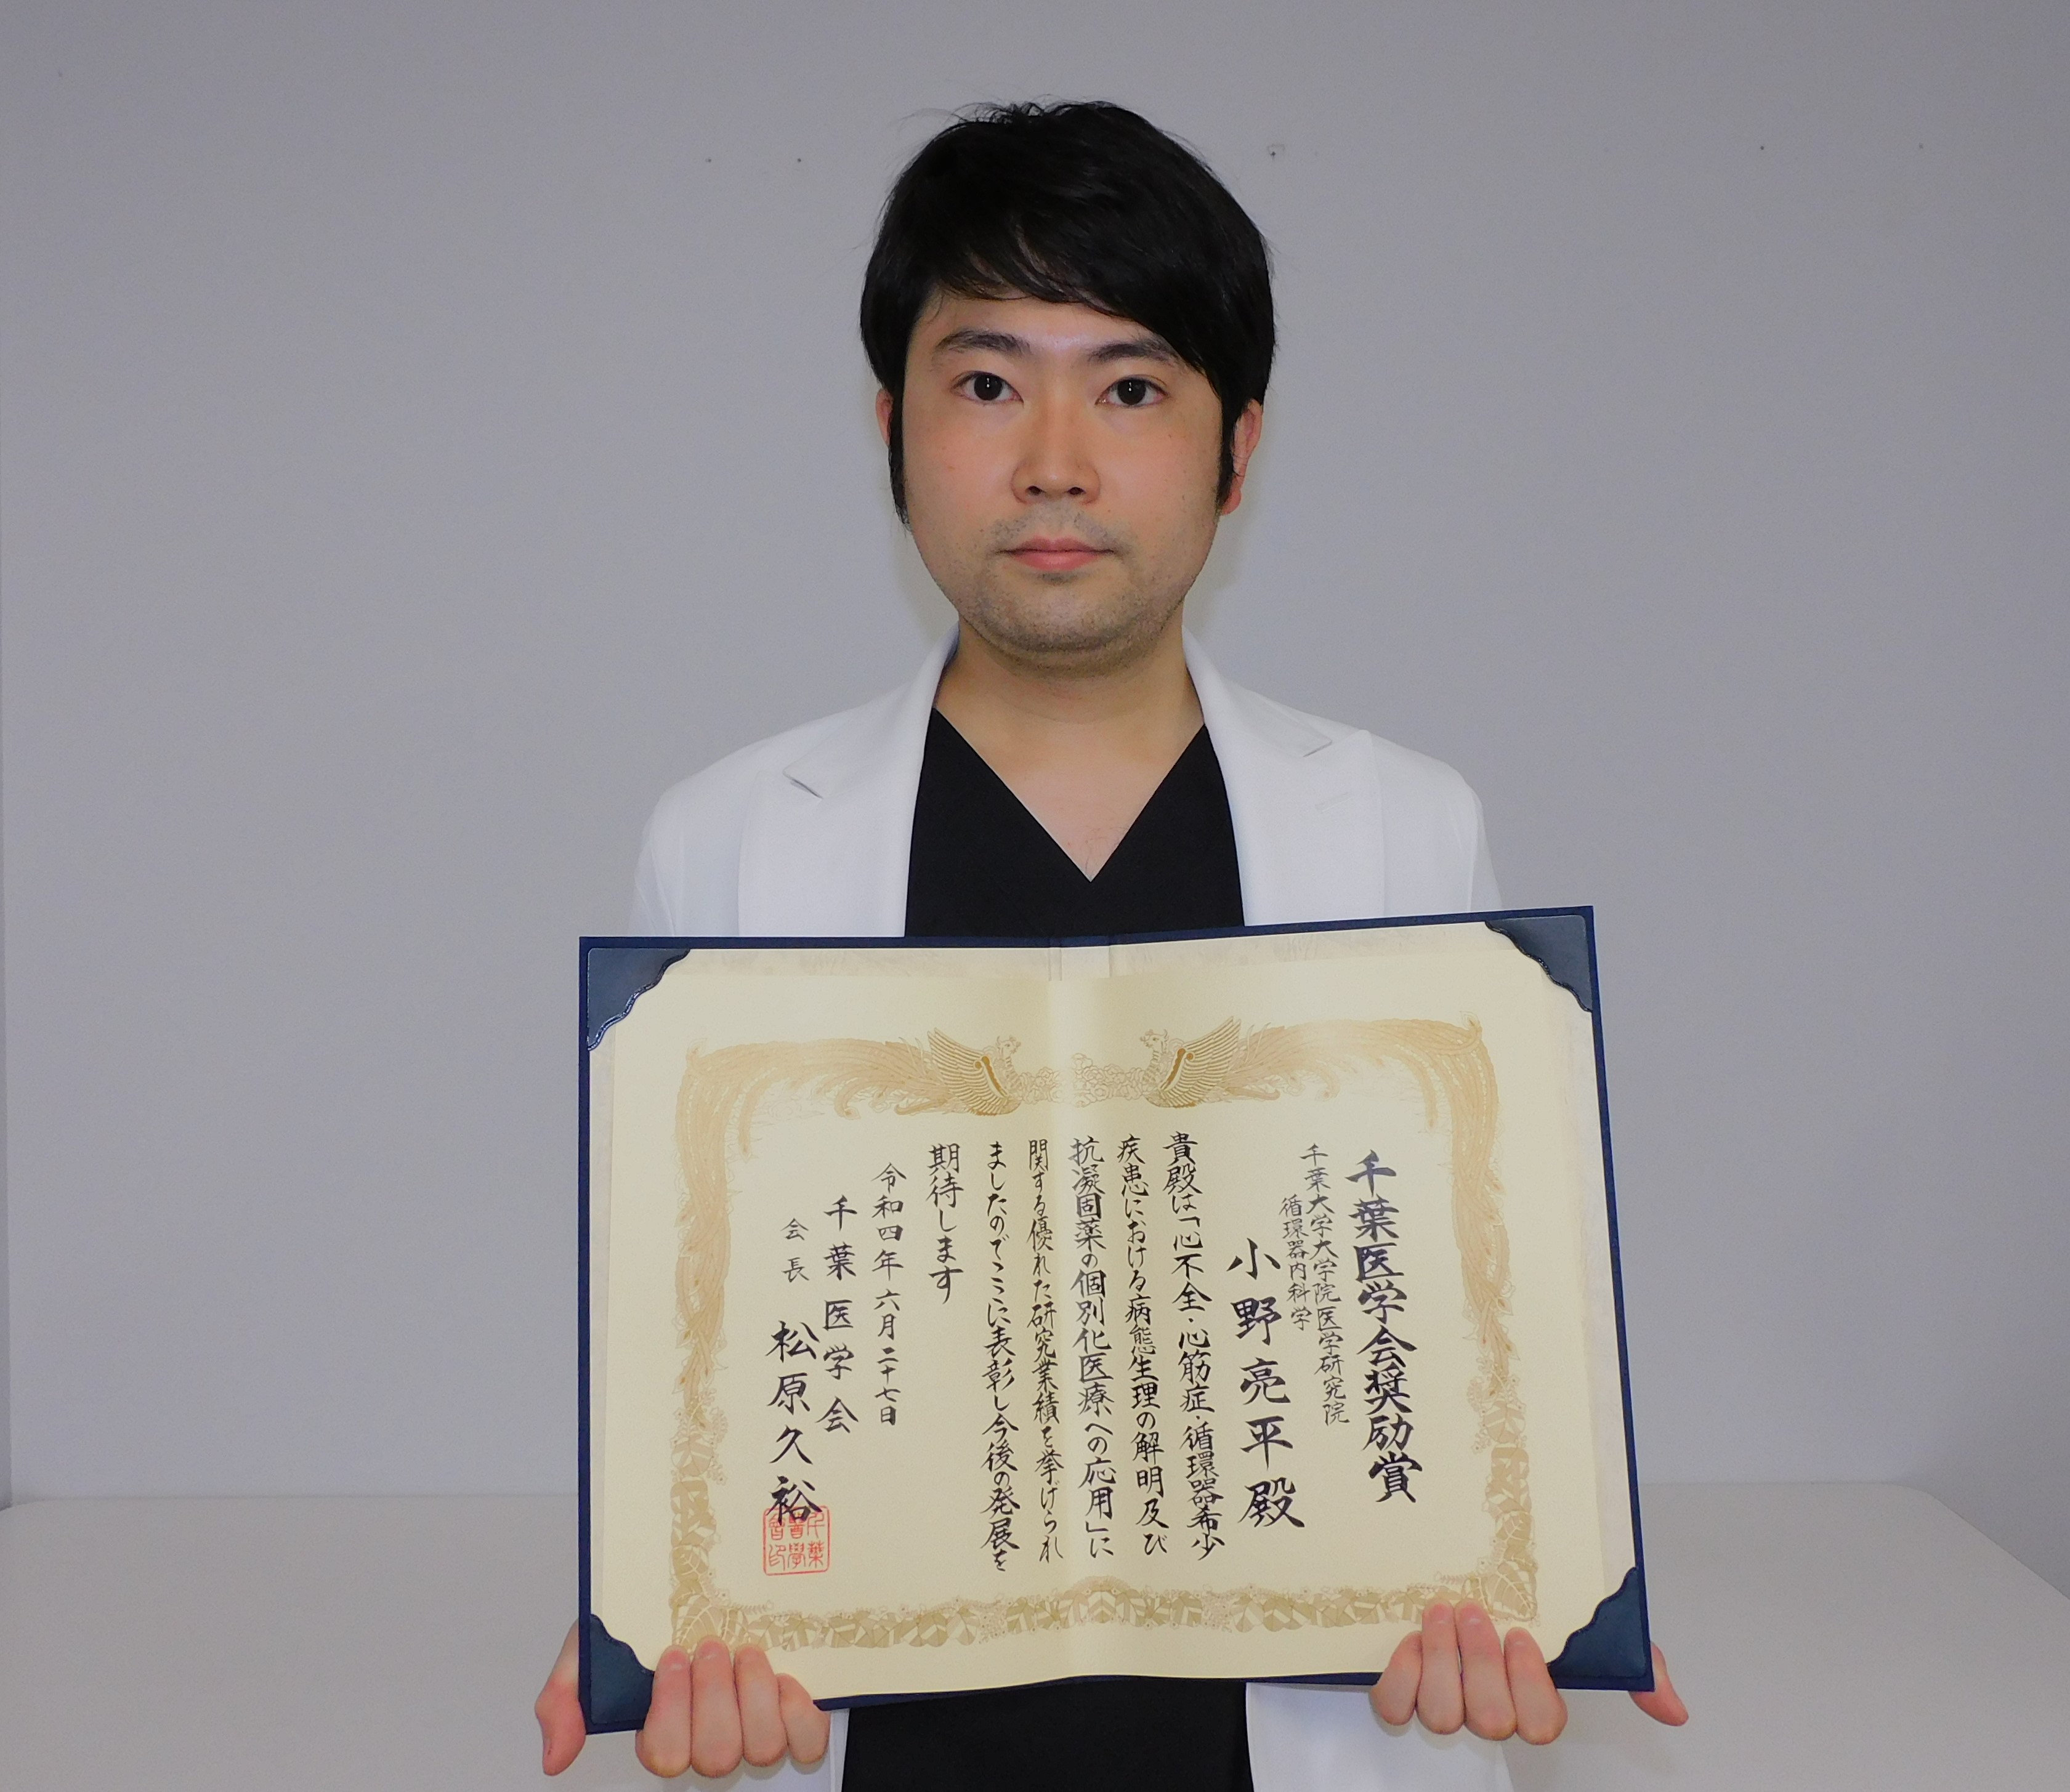 千葉医学会奨励賞
千葉大学大学院医学研究院
循環器内科学
小野亮平殿
貴殿は「心不全・心筋症・循環器希少
疾患における病態生理の解明及び
抗凝固薬の個別化医療への応用」に
関する優れた研究業績を挙げられ
ましたのでここに表彰し今後の発展を
期待します
令和四年六月二十七日
千葉医学会
会長 松原久裕
千葉
醫學
會印